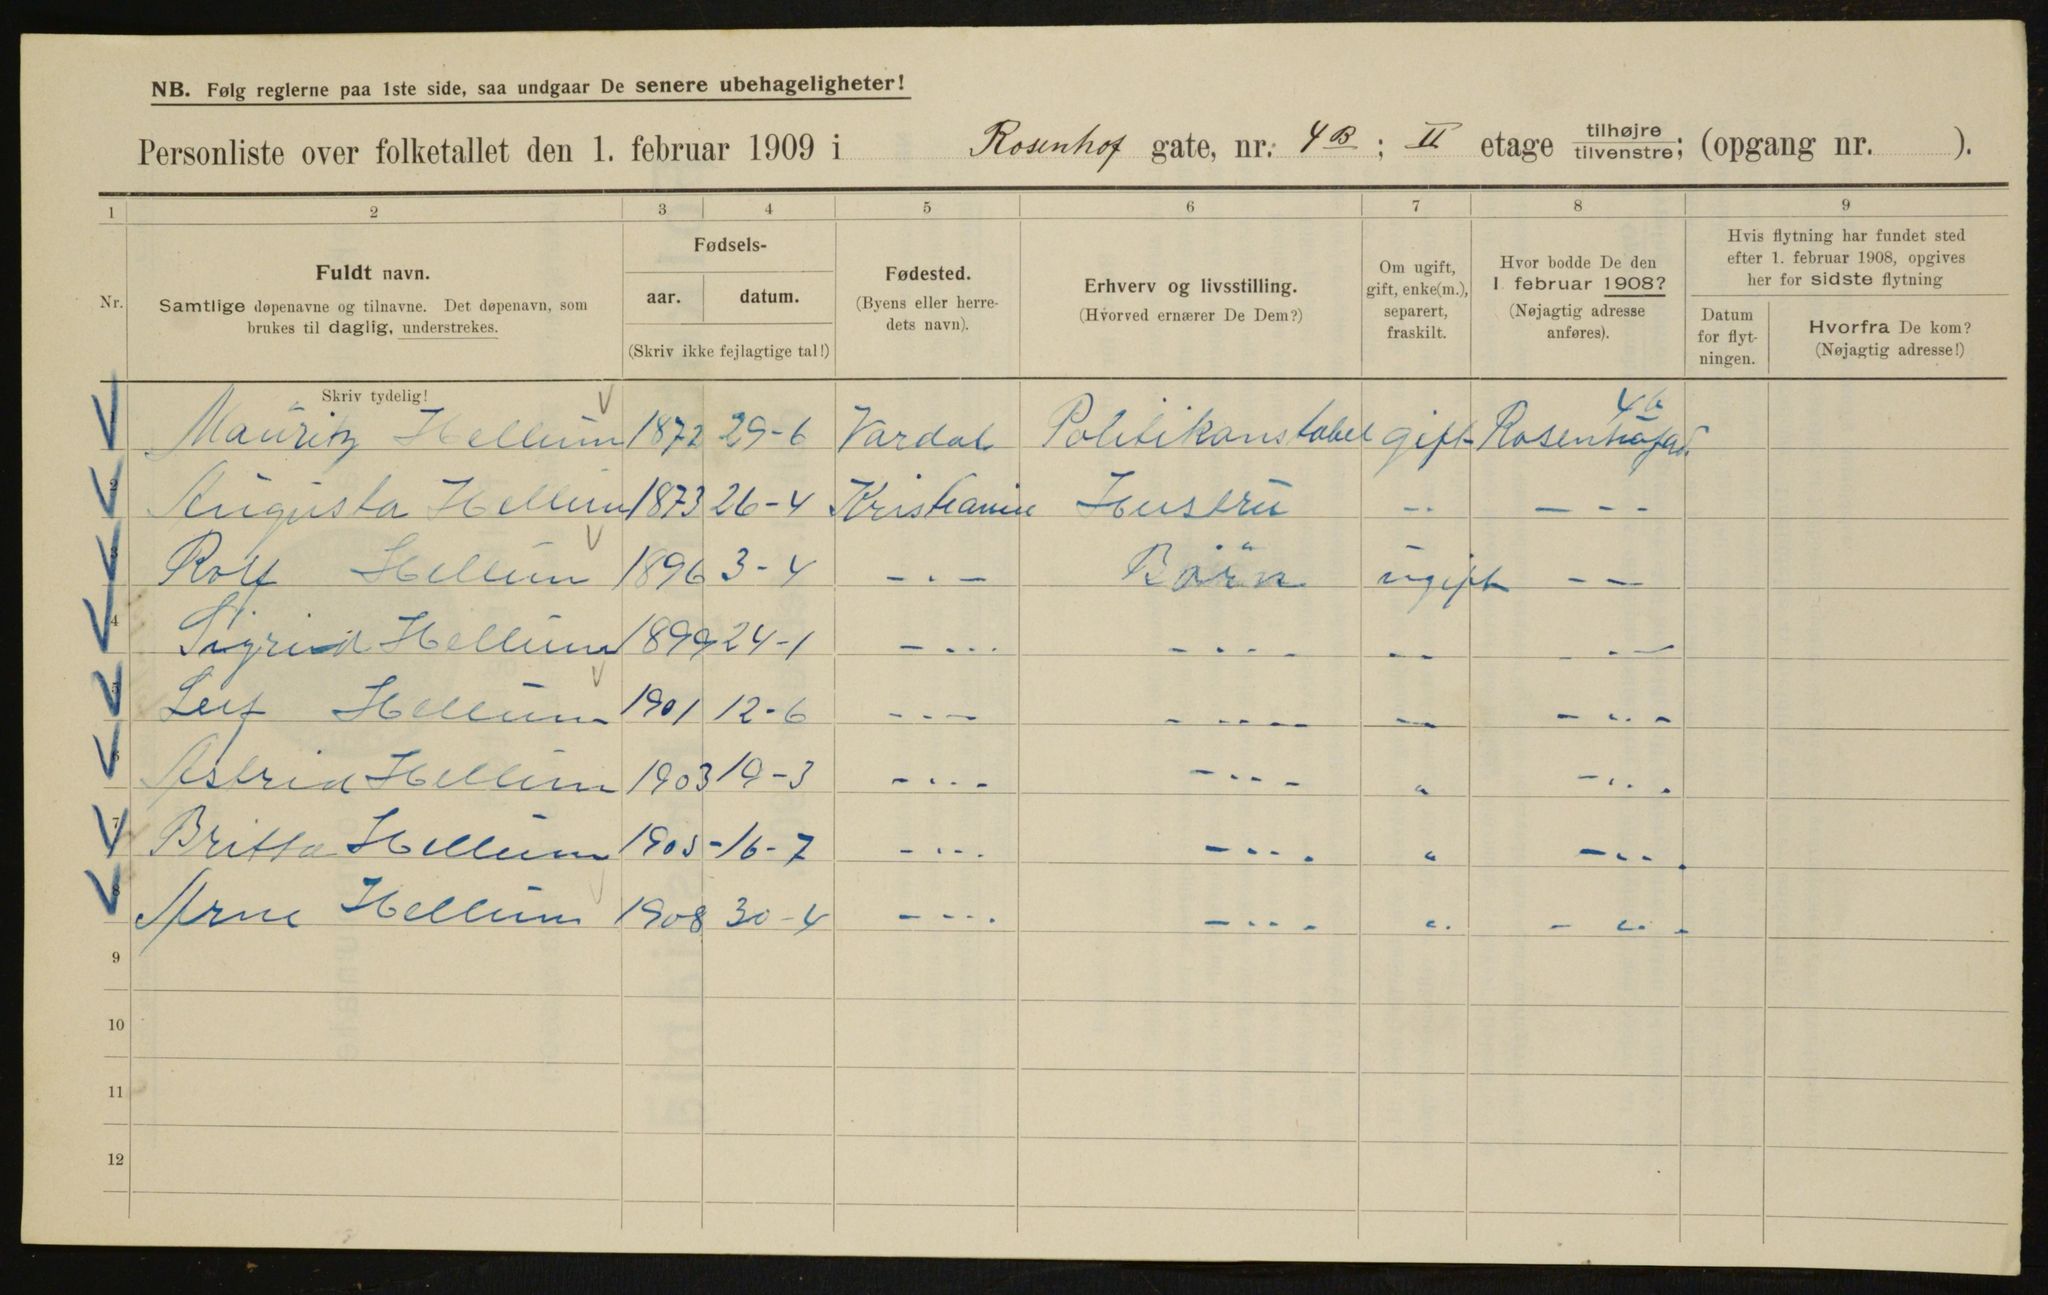 NB. Følg reglerne paa 1ste side, saa undgaar De senere ubehageligheter!
Personliste over folketallet den 1. februar 1909 i Rosenhof gate, nr. 4B; II etage tilhøjre/tilvenstre; (opgang nr. ).
1 2 3 4 5 6 7 8 9
Nr.
Fuldt navn.
Samtlige døpenavne og tilnavne. Det døpenavn, som
brukes til daglig, understrekes.
Fødsels-
aar. datum.
(Skriv ikke fejlagtige tal!)
Fødested.
(Byens eller herre-
dets navn).
Erhverv og livsstilling.
(Hvorved ernærer De Dem?)
Om ugift,
gift, enke(m.),
separert,
fraskilt.
Hvor bodde De den
1. februar 1908?
(Nøjagtig adresse
anføres).
Hvis flytning har fundet sted
efter 1. februar 1908, opgives
her for sidste flytning
Datum
for flyt-
ningen.
Hvorfra De kom?
(Nøjagtig adresse!)
Skriv tydelig!
1 Mauritz Hellum 1872 29-6 Vardal Politikonstabel gift Rosenhofgd. 4b
2 Augusta Hellum 1873 26-4 Kristiania Hustru -.. - - -
3 Rolf Hellum 1896 3-4 -.- Börn ugift - -
4 Sigrid Hellum 1899 24-1 -... -... -- ..-
5 Leif Hellum 1901 12-6 --.- -...- -- -..-
6 Astrid Hellum 1903 19-3 -..- -..- " -...
7 Britta Hellum 1905-16-7 -... -... " -...
8 Arne Hellum 1908 30-4 -... -... " - "..
9
10
11
12